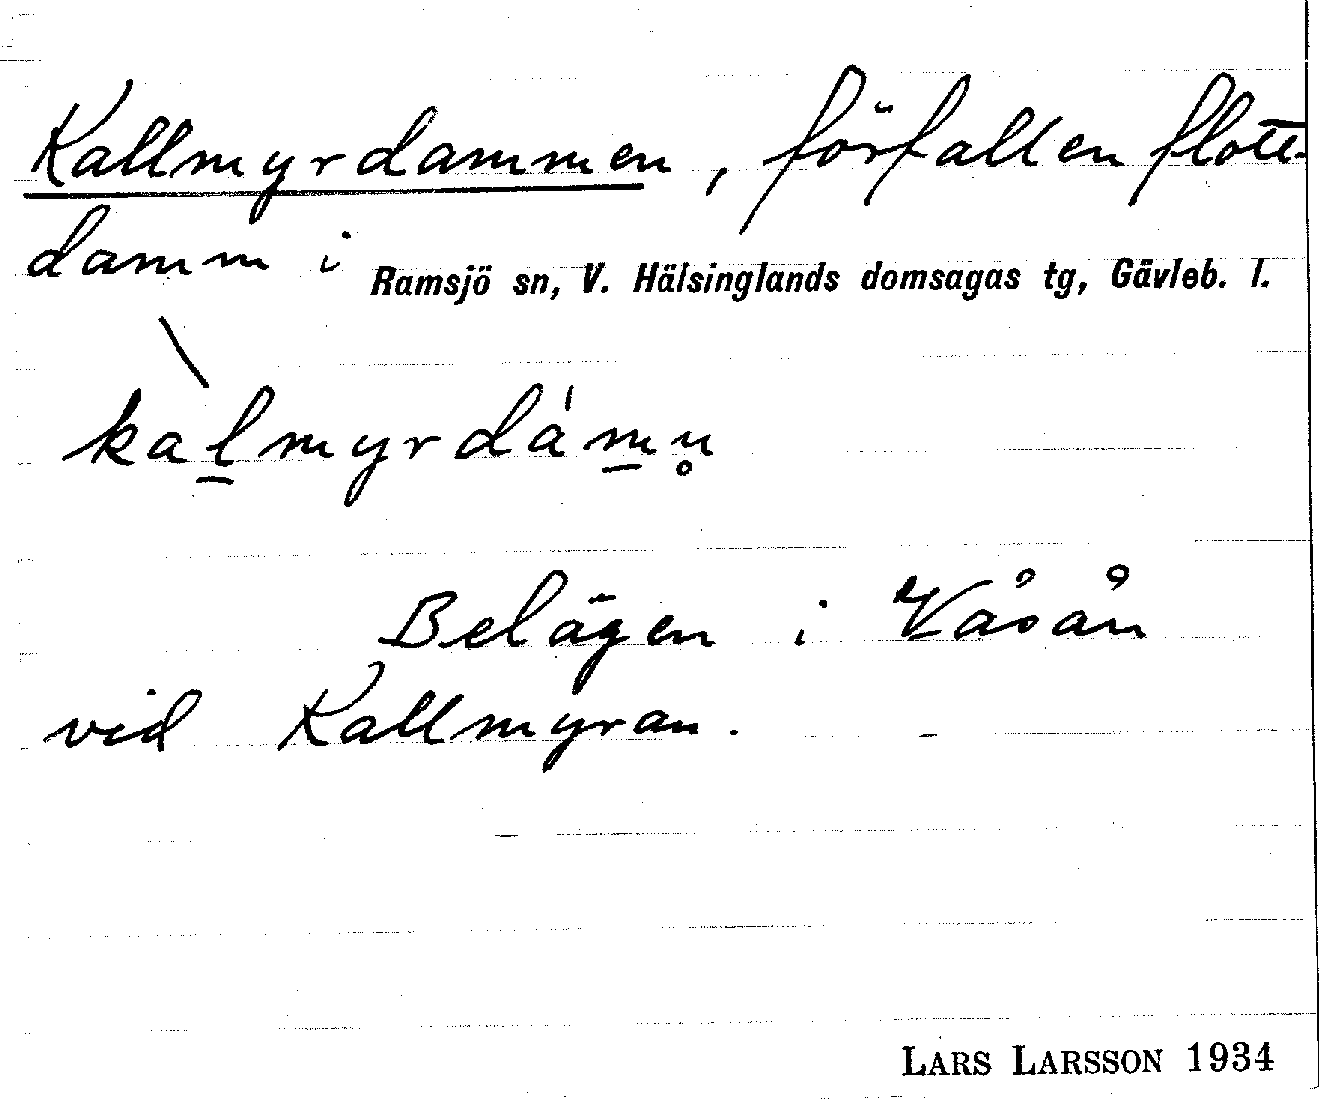 Kallmyrdammen, förfallen flott-
damm i Ramsjö sn, V. Hälsinglands domsagas tg, Gävleb. l.
kàl̲myrdám̲n̥
Belägen i Våsån
vid Kallmyran.
LARS LARSSON 1934